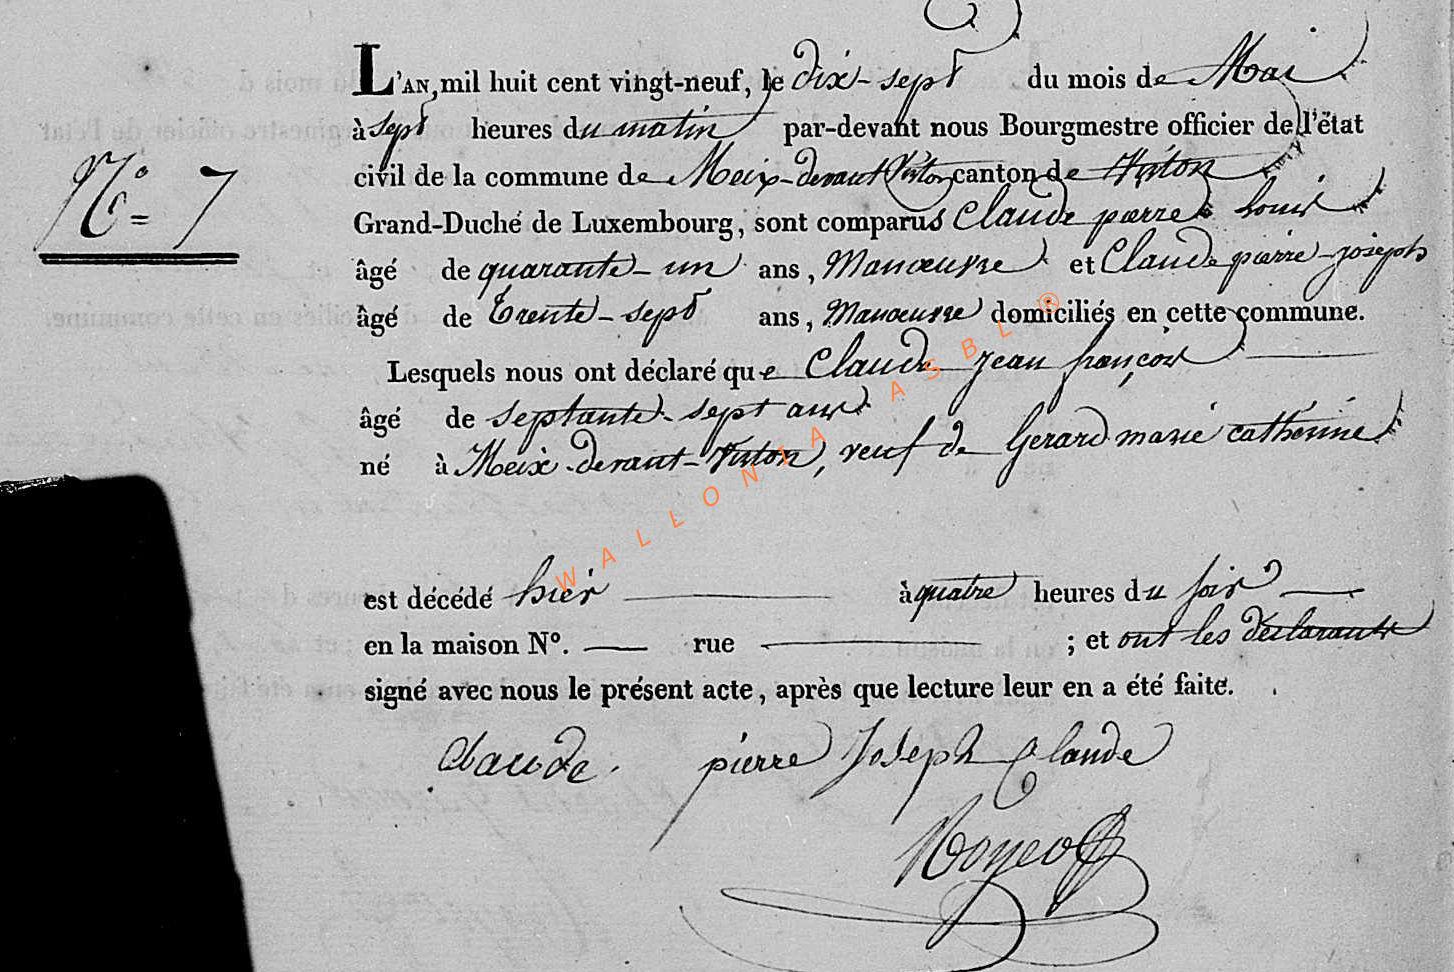 L'AN mil huit cent vingt-neuf, le dix-sept du mois de Mai
à sept heures du matin par-devant nous Bourgmestre officier de l'état
N.º 7
civil de la commune de Meix-devant Virton canton de Virton
Grand-Duché de Luxembourg, sont comparus Claude pierre louis
âgé de quarante-un ans, Manœuvre et Claude pierre-joseph
âgé de trente-sept ans, Manœuvre domiciliés en cette commune.
Lesquels nous ont déclaré que Claude jean françois
âgé de septante-sept ans
né à Meix-devant-Virton, veuf de Gerard marie catherine
WALLONIA ASBL ®
est décédé hier à quatre heures du soir
en la maison Nº. rue ; et ont les déclarants
signé avec nous le présent acte, après que lecture leur en a été faite.
Claude. pierre Joseph Claude